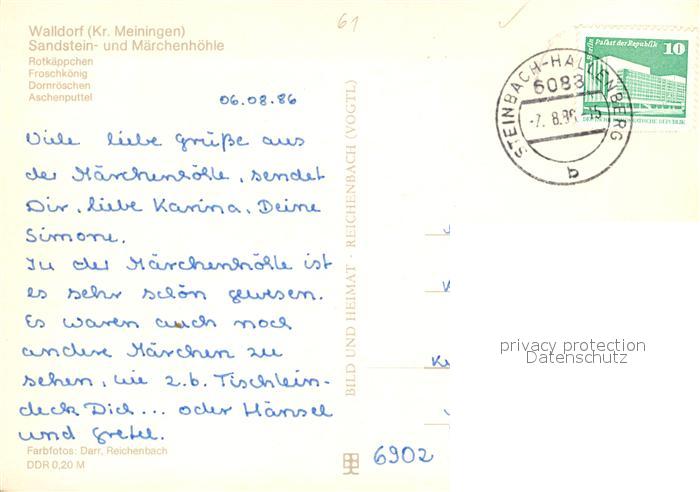 61
Walldorf (Kr. Meiningen)
Sandstein- und Märchenhöhle
Rotkäppchen
Froschkönig
Dornröschen
Aschenputtel
06.08.86
Viele liebe Grüße aus
der Märchenhöhle, sendet
Dir, liebe Karina, Deine
Simone.
In der Märchenhöhle ist
es sehr schön gewesen.
Es waren auch noch
andere Märchen zu
sehen, wie z.b. Tischlein-
deck Dich... oder Hänsel
und Gretel.
Farbfotos: Darr, Reichenbach
DDR 0,20 M
BILD UND HEIMAT · REICHENBACH (VOGTL)
Berlin Palast der Republik 10
DEUTSCHE DEMOKRATISCHE REPUBLIK
STEINBACH-HALLENBERG
6088
-7. 8.86
b
privacy protection
Datenschutz
6902